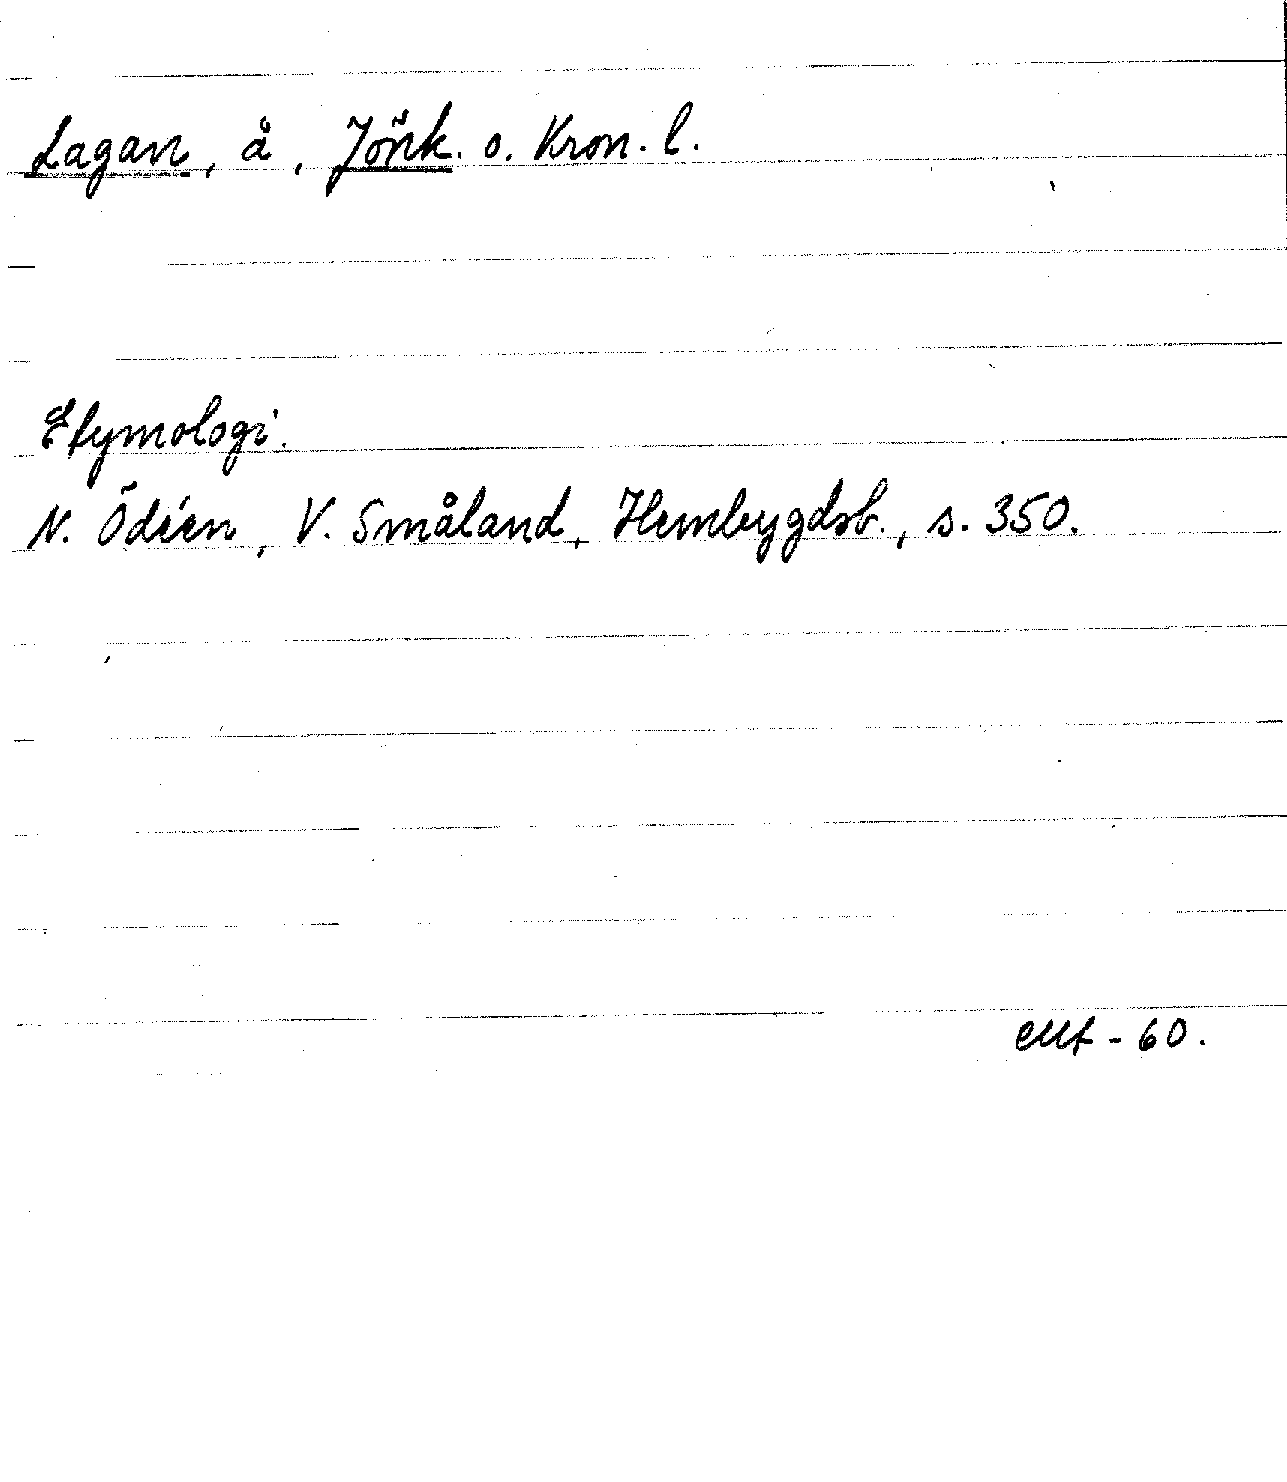 Lagan, å, Jönk. o. Kron. l.
Etymologi.
N. Ödéen, V. Småland, Hembygdsb., s. 350.
-60.